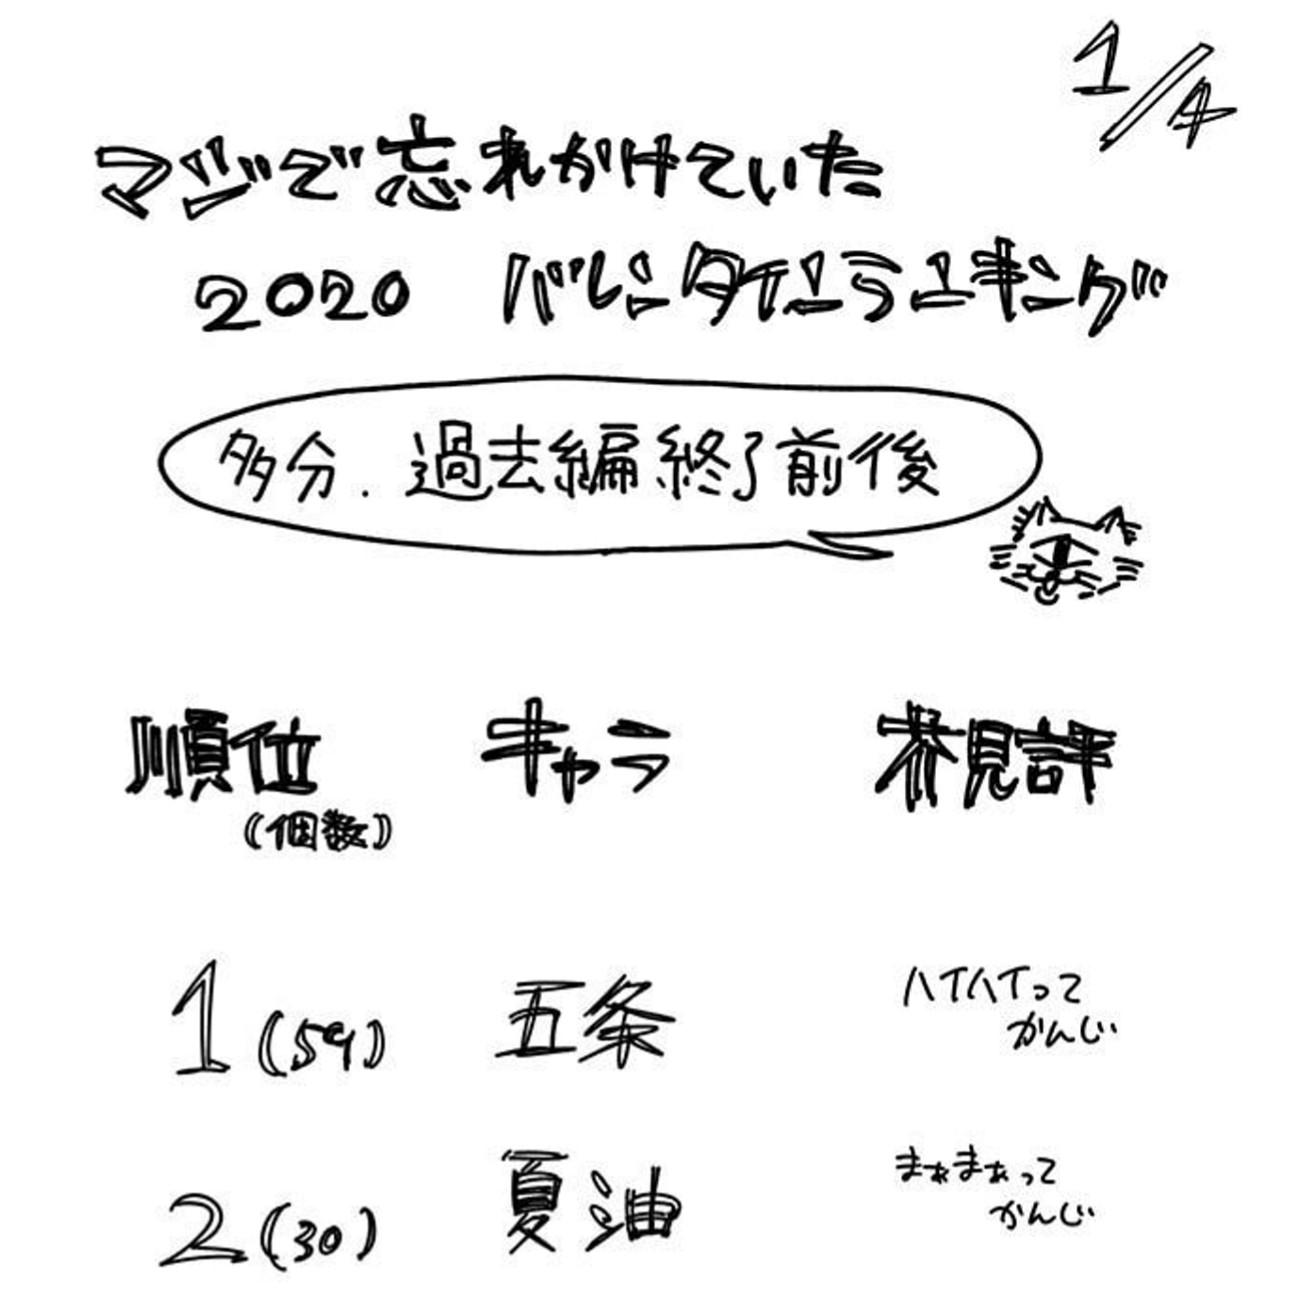 1/4
マジで忘れかけていた
2020 バレンタインランキング
多分.過去編終了前後
順位 キャラ 芥見評
(個数)
1(59) 五条 ハイハイって
かんじ
2(30) 夏油 まぁまぁって
かんじ